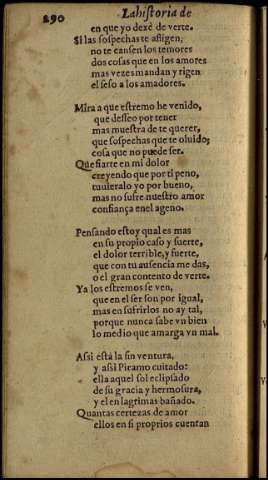 290
La historia de
en que yo dexè de verte.
Si las sospechas te afligen,
no te cansen los temores
dos cosas que en los amores
mas vezes mandan y rigen
el seso a los amadores.
Mira a que estremo he venido,
que desseo por tener
mas muestra de te querer,
que sospeches que te oluido;
cosa que no puede ser.
Que fiarte en mi dolor
creyendo que por ti peno,
tuuieralo yo por bueno,
mas no sufre nuestro amor
confiança en el ageno.
Pensando estoy qual es mas
en su propio caso y suerte,
el dolor terrible, y fuerte,
que con tu ausencia me das,
o el gran contento de verte.
Ya los estremos se ven,
que en el ser son por igual,
mas en sufrirlos no ay tal,
porque nunca sabe vn bien
lo medio que amarga vn mal.
Assi està la sin ventura,
y assi Piramo cuitado:
ella aquel sol eclipsado
de su gracia y hermosura,
y el en lagrimas bañado.
Quantas certezas de amor
ellos en si proprios cuentan